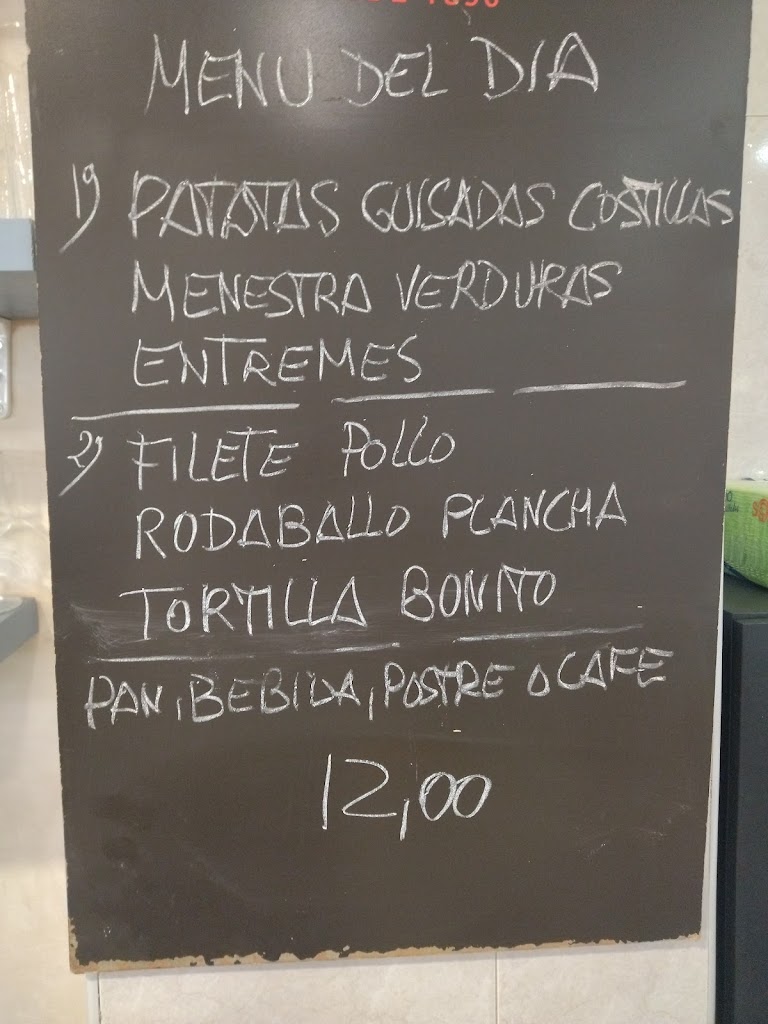 MENU DEL DIA
1) PATATAS GUISADAS COSTILLAS
MENESTRA VERDURAS
ENTREMES
2) FILETE POLLO
RODABALLO PLANCHA
TORTILLA BONITO
PAN, BEBIDA, POSTRE O CAFE
12,00